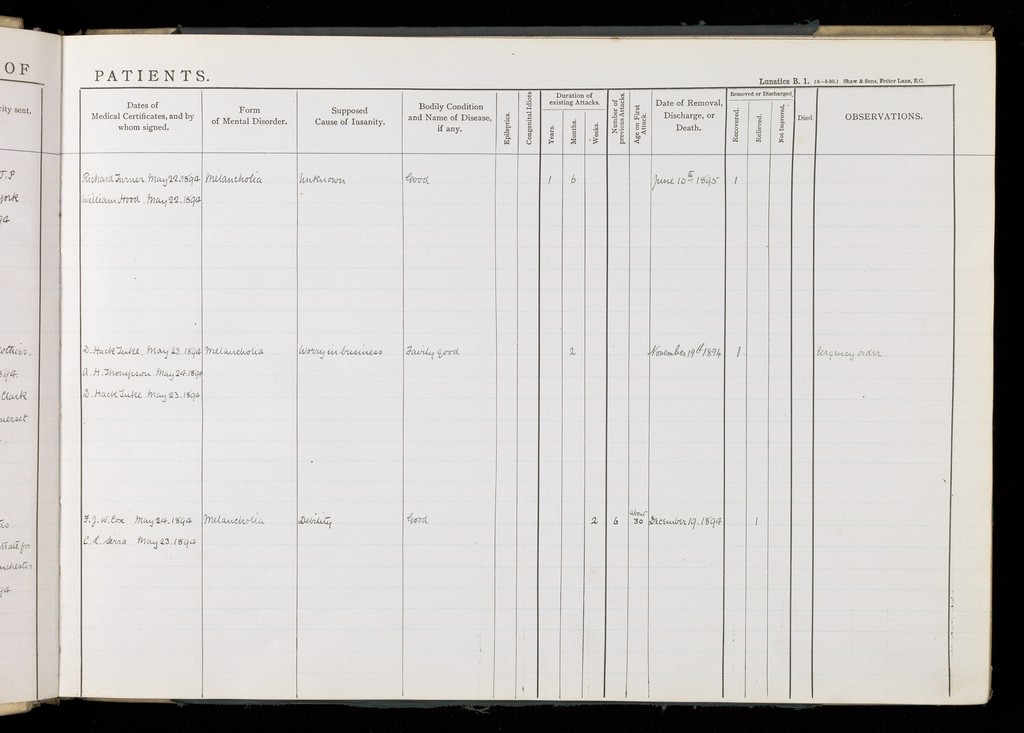 OF
PATIENTS.
Lunatics B. 1. Shaw & Sons, Fetter Lane, E.C.
city sent.
Dates of
Medical Certificates, and by
whom signed.
Form
of Mental Disorder.
Supposed
Cause of Insanity.
Bodily Condition
and Name of Disease,
if any.
Epileptics.
Congenital Idiots
Duration of
existing Attacks.
Years.
Months.
Weeks.
Number of
previous Attacks.
Age on First
Attack.
Date of Removal,
Discharge, or
Death.
Removed or Discharged
Recovered.
Relieved.
Not Improved.
Died.
OBSERVATIONS.
J.P
York
94
Richard Turner May 22. 1894 Melancholia Unknown Good 1 6 June 10th 1895 1
William Hood. May 22. 1894
894.
Clack
merset
D. Hack Tuke, May 23. 1894 Melancholia Worry in business Fairly good 2 November 19th 1894 1 Urgency order
A. H. Thompson. May 24. 1894
D. Hack Tuke May 23. 1894
F. J. W. Cox May 24. 1894 Melancholia Debility Good 2 6 about 30 December 19. 1894 1
C. L. Serra May 23. 1894
trate for
nchester
94